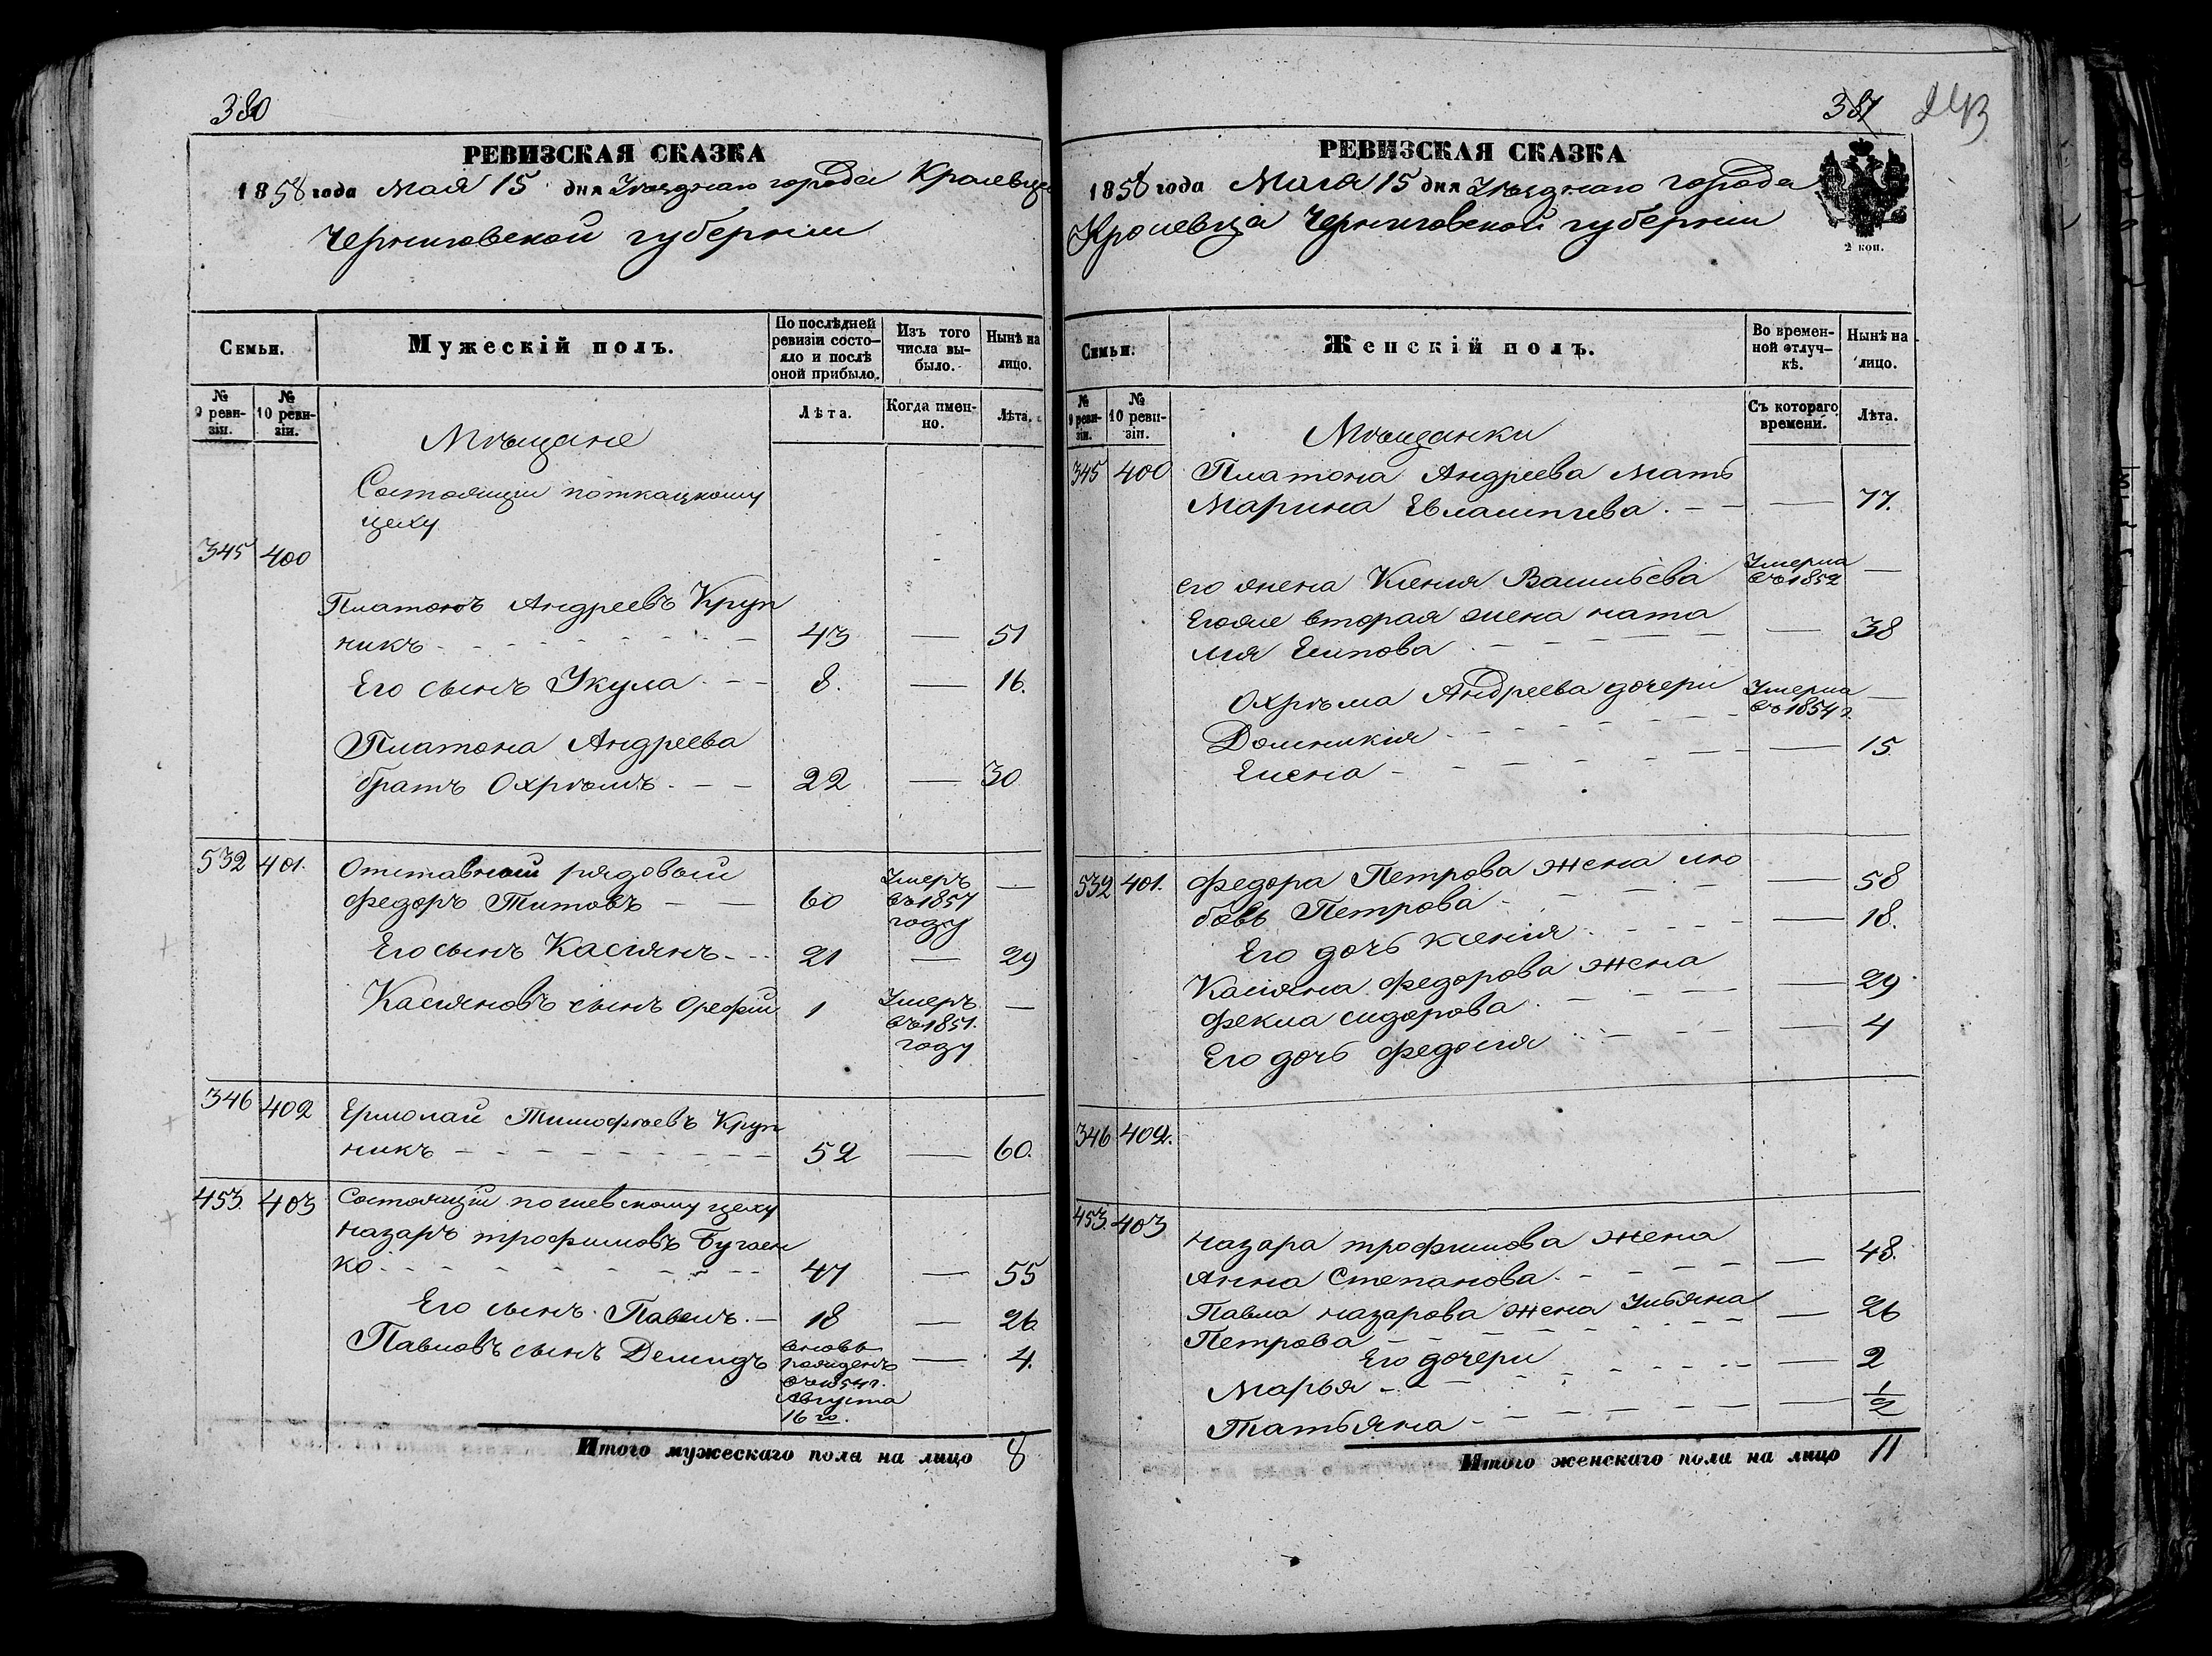 380
РЕВИЗСКАЯ СКАЗКА
1858 года Мая 15 дня Уѣзднаго города Кролевца
Черниговской губерніи
Семьи.
Мужескій полъ.
По послѣдней ревизіи состояло и послѣ оной прибыло.
Изъ того числа выбыло.
Нынѣ на лицо.
№ 9 ревизіи.
№ 10 ревизіи.
Лѣта.
Когда именно.
Лѣта.
Мѣщане
Состоящіи поткацкому
цеху
345 400
Платонъ Андреевъ Круп
никъ 43 — 51
Его сынъ Укула 8. — 16.
Платона Андреева
братъ Охрѣмъ 22 — 30
532 401. Отставной рядовый
Федоръ Титовъ 60 Умеръ въ 1857 году —
Его сынъ Касіянъ 21 — 29
Касіяновъ сынъ Орефій 1 Умеръ въ 1851. году —
346 402 Ермолай Тимофѣевъ Круп
никъ 52 — 60.
453. 403 Состоящіи
цеху
назаръ трофимовъ Бугаен
ко 47 — 55
Его сынъ Павелъ 18 — 26
Павловъ сынъ Демидъ вновь рожденъ въ 1854 г. Августа 16 го. — 4.
Итого мужескаго пола на лицо 8
387
РЕВИЗСКАЯ СКАЗКА
1858 года Мая 15 дня Уѣзднаго города
Кролевца Черниговской губерніи
2 коп.
Семьи.
Женскій полъ.
Во временной отлучкѣ.
Нынѣ на лицо.
№ 9 ревизіи.
№ 10 ревизіи.
Съ котораго времени.
Лѣта.
Мѣщанки
345 400 Платона Андреева мать
Марина Евлампіева. — 77.
его жена Ксенія Васильева Умерла въ 1852 —
Егоже вторая жена ната
лія Есипова — 38
Охрѣма Андреева дочери
Домникія Умерла въ 1854 г. —
Елена — 15
532 401. Федора Петрова жена лю
бовь Петрова — 58
Его дочь ксенія — 18.
Касіяна федорова жена
Фекла сидорова — 29
Его дочь федосія — 4
346 402.
453. 403 назара трофимова жена
Анна Степанова — 48.
Павла назарова жена Ульяна
Петрова — 26
Его дочери
Марья — 2
Татьяна — 1/2
Итого женскаго пола на лицо 11